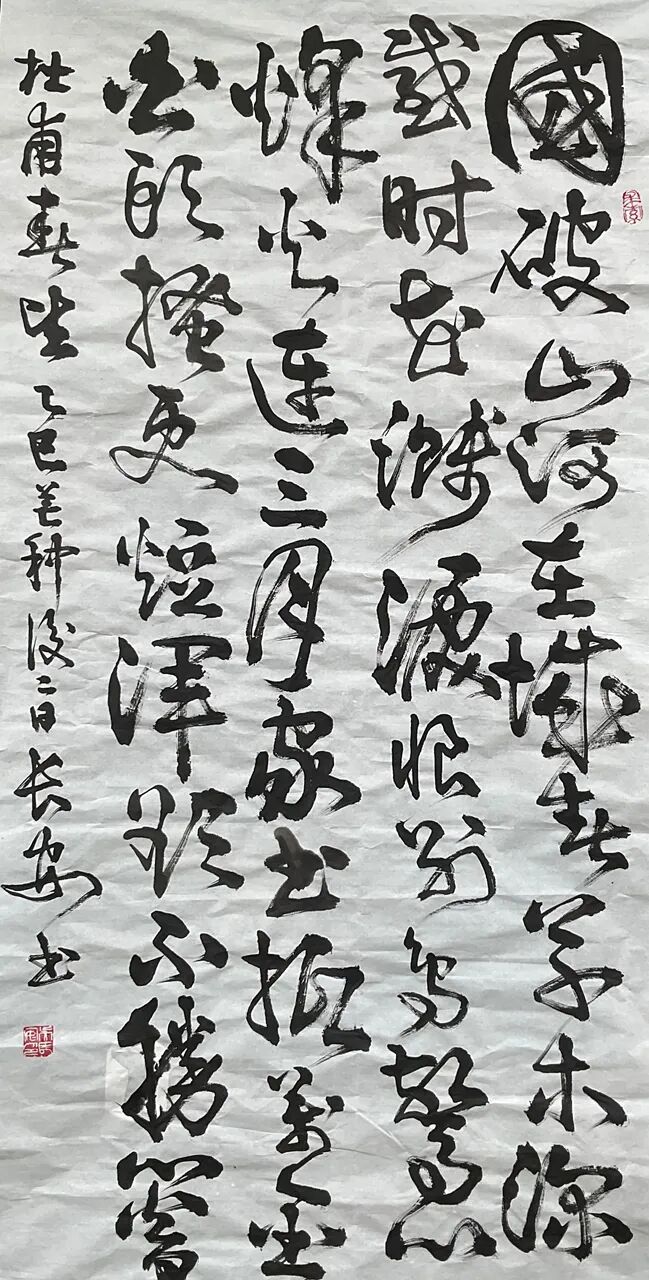 國破山河在城春草木深
感时花溅淚恨别鸟驚心
烽火连三月家书抵萬金
白头搔更短浑欲不勝簪
杜甫春望乙巳芒种後二日长安书